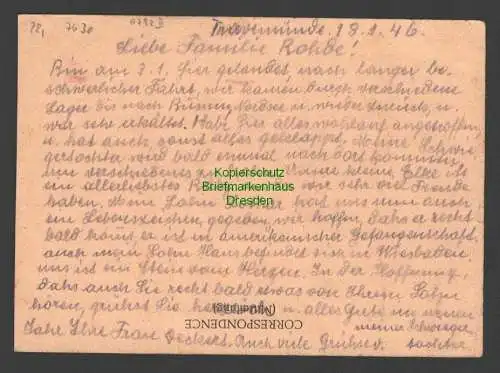 7630
Travemünde, 18.1.46.
Liebe Familie Rohde!
Bin am 3.1. hier gelandet nach langer be-
schwerlicher Fahrt, wir kamen durch verschiedene
Lager bis nach Nordsee u. wieder zurück, u.
war sehr erkältet. Habe hier alles wohlauf angetroffen
u. hat auch sonst alles geklappt. Meine Schwie-
gertochter wird bald einmal nach dort kommen,
um verschiedenes kleine Elke ist
ein allerliebstes wir sehr viel Freude
haben. Sohn hat uns nun auch
ein Lebenszeichen gegeben, wir hoffen, daß er recht
bald kommt, er ist in amerikanischer Gefangenschaft,
auch mein Sohn Hans befindet sich in Wiesbaden,
uns ist ein Stein vom Herzen. In der Hoffnung,
daß auch Sie recht bald etwas von Ihrem Sohn
hören, grüßt Sie herzlich u. alles Gute im neuen
Jahr Ihre Frau Deckert. Auch viele Grüße v.
meiner Schwieger
tochter
Kopierschutz
Briefmarkenhaus
Dresden
CORRESPONDENCE
(Mitteilung)